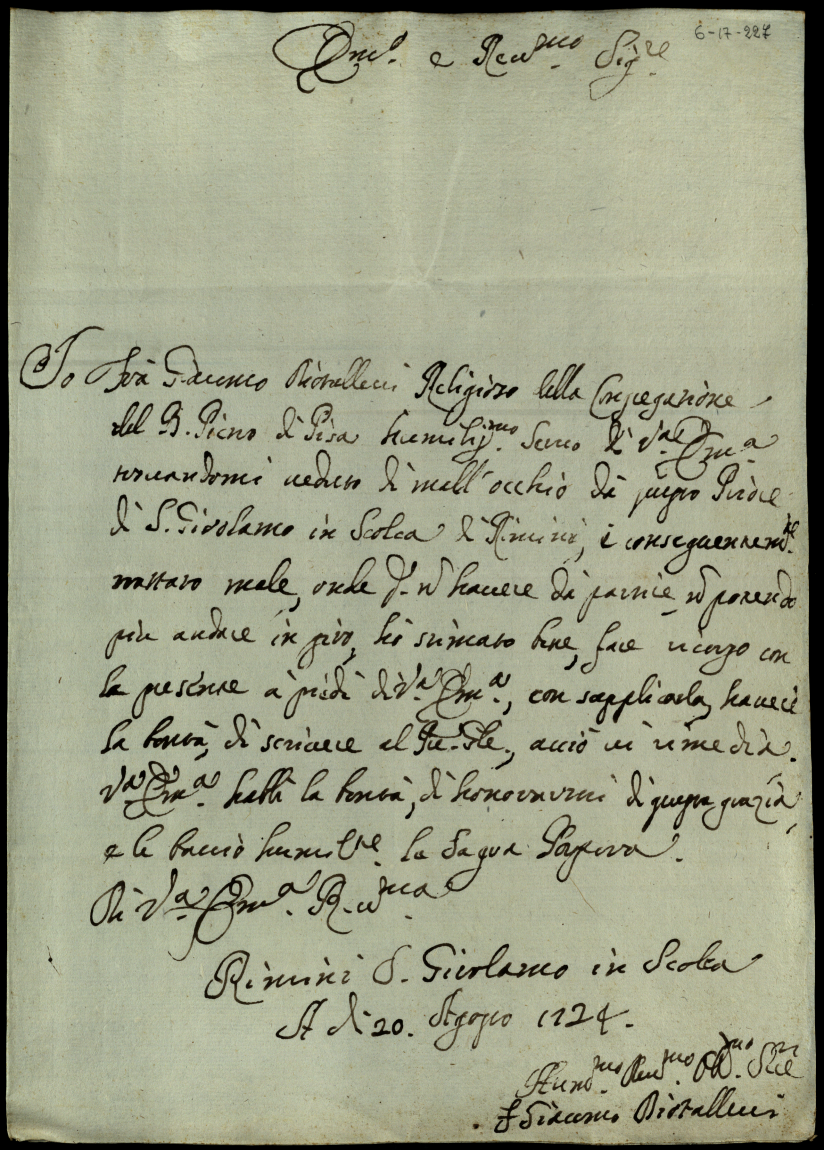 6-17-227
Em.º e Reu.mo Sig.re
Io Frà Giacomo Religioso della Congregatione
del B. Pietro di Pisa humiliss.mo Seruo di V.a Em.a
trouandomi ueduto di mall'occhio da questo Priore
di S. Girolamo in Scolca di Rimini, è conseguentem.te
trattato male, onde p. nõ hauere da patire, nõ potendo
piu andare in giro, hò stimato bene, fare ricorso con
la presente à piedi di V.a Em.a, con supplicarla, hauere
la bontà, di scriuere al Ge.rle, acciò ui rimedia.
V.a Em.a habbi la bontà, di honorarmi di questa grazia,
e le baccio humilt.e la Sagra Porpora.
Di V.a Em.a R.ma
Rimini S. Girolamo in Scolca
A dì 20. Agosto 1724.
Reu.mo Obb.mo Se.re
F Giacomo